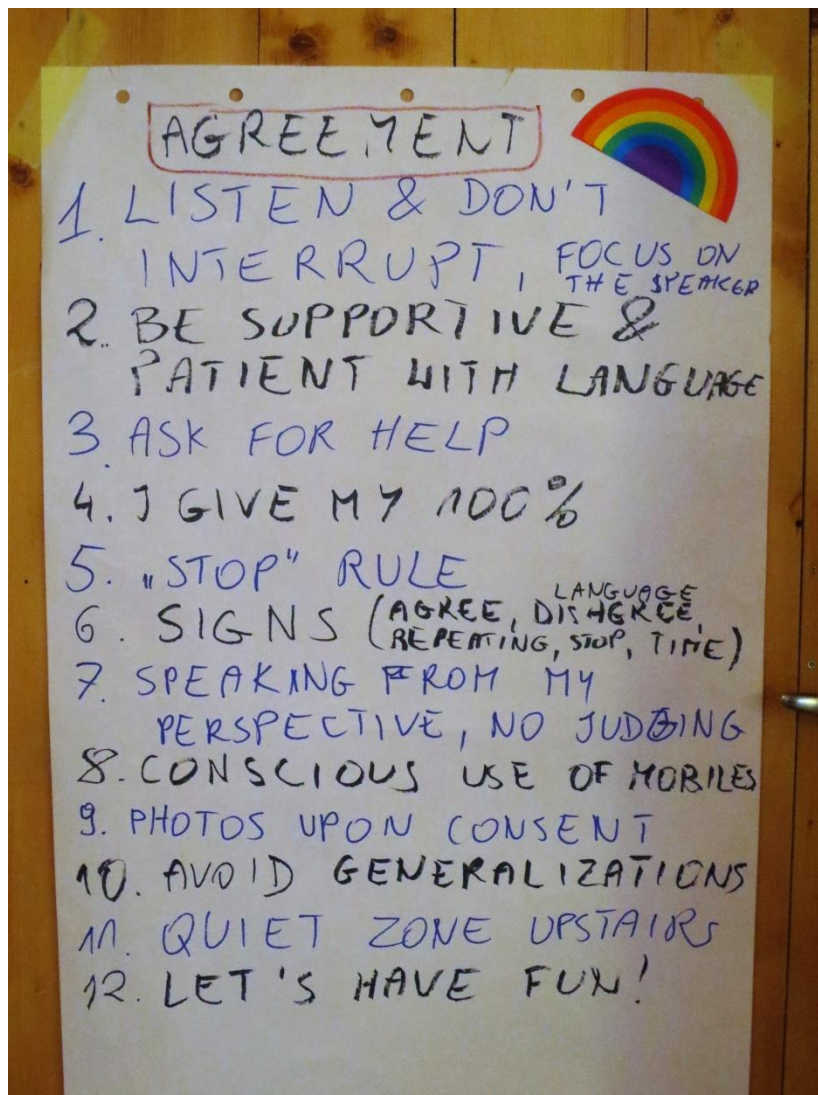 AGREEMENT
1. LISTEN & DON'T
INTERRUPT, FOCUS ON
THE SPEAKER
2. BE SUPPORTIVE &
PATIENT WITH LANGUAGE
3. ASK FOR HELP
4. I GIVE MY 100%
5. „STOP" RULE
6. SIGNS (AGREE, DISAGREE, LANGUAGE
REPEATING, STOP, TIME)
7. SPEAKING FROM MY
PERSPECTIVE, NO JUDGING
8. CONSCIOUS USE OF MOBILES
9. PHOTOS UPON CONSENT
10. AVOID GENERALIZATIONS
11. QUIET ZONE UPSTAIRS
12. LET'S HAVE FUN!